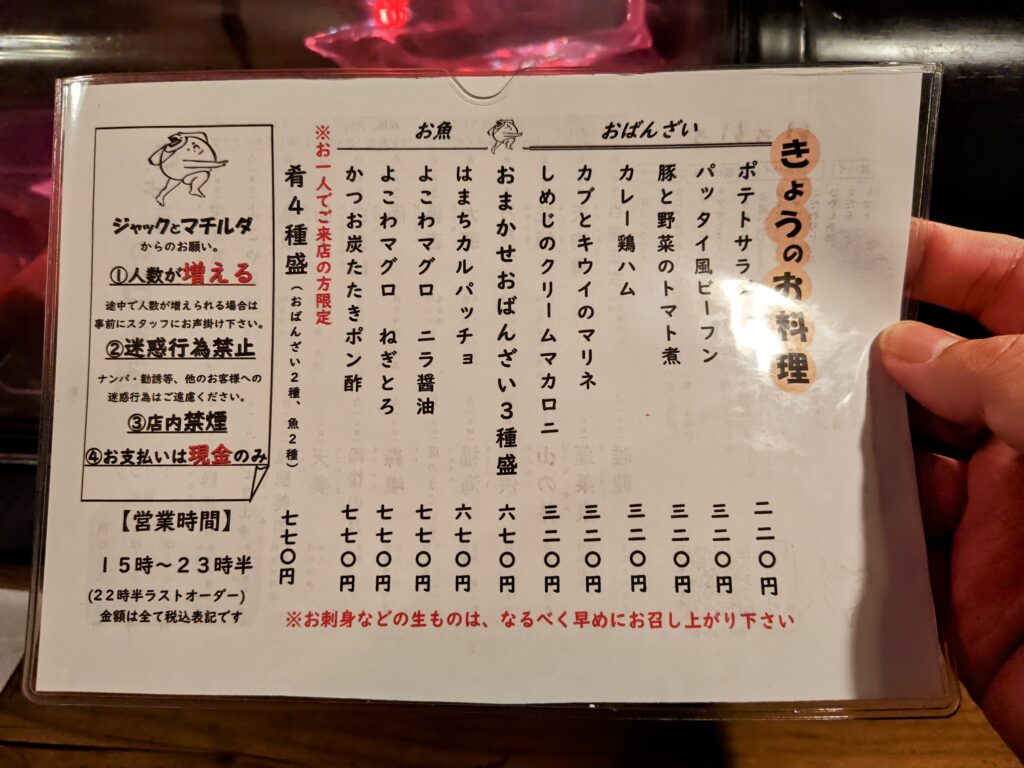 きょうのお料理
おばんざい
ポテトサラダ 二二〇円
パッタイ風ビーフン 三二〇円
豚と野菜のトマト煮 三二〇円
カレー鶏ハム 三二〇円
カブとキウイのマリネ 三二〇円
しめじのクリームマカロニ 三二〇円
おまかせおばんざい3種盛 六七〇円
お魚
はまちカルパッチョ 六七〇円
よこわマグロ ニラ醤油 七七〇円
よこわマグロ ねぎとろ 七七〇円
かつお炭たたきポン酢 七七〇円
※お一人でご来店の方限定
肴4種盛(おばんざい2種、魚2種) 七七〇円
※お刺身などの生ものは、なるべく早めにお召し上がり下さい
ジャックとマチルダ
からのお願い。
①人数が増える
途中で人数が増えられる場合は
事前にスタッフにお声掛け下さい。
②迷惑行為禁止
ナンパ・勧誘等、他のお客様への
迷惑行為はご遠慮ください。
③店内禁煙
④お支払いは現金のみ
【営業時間】
15時～23時半
(22時半ラストオーダー)
金額は全て税込表記です